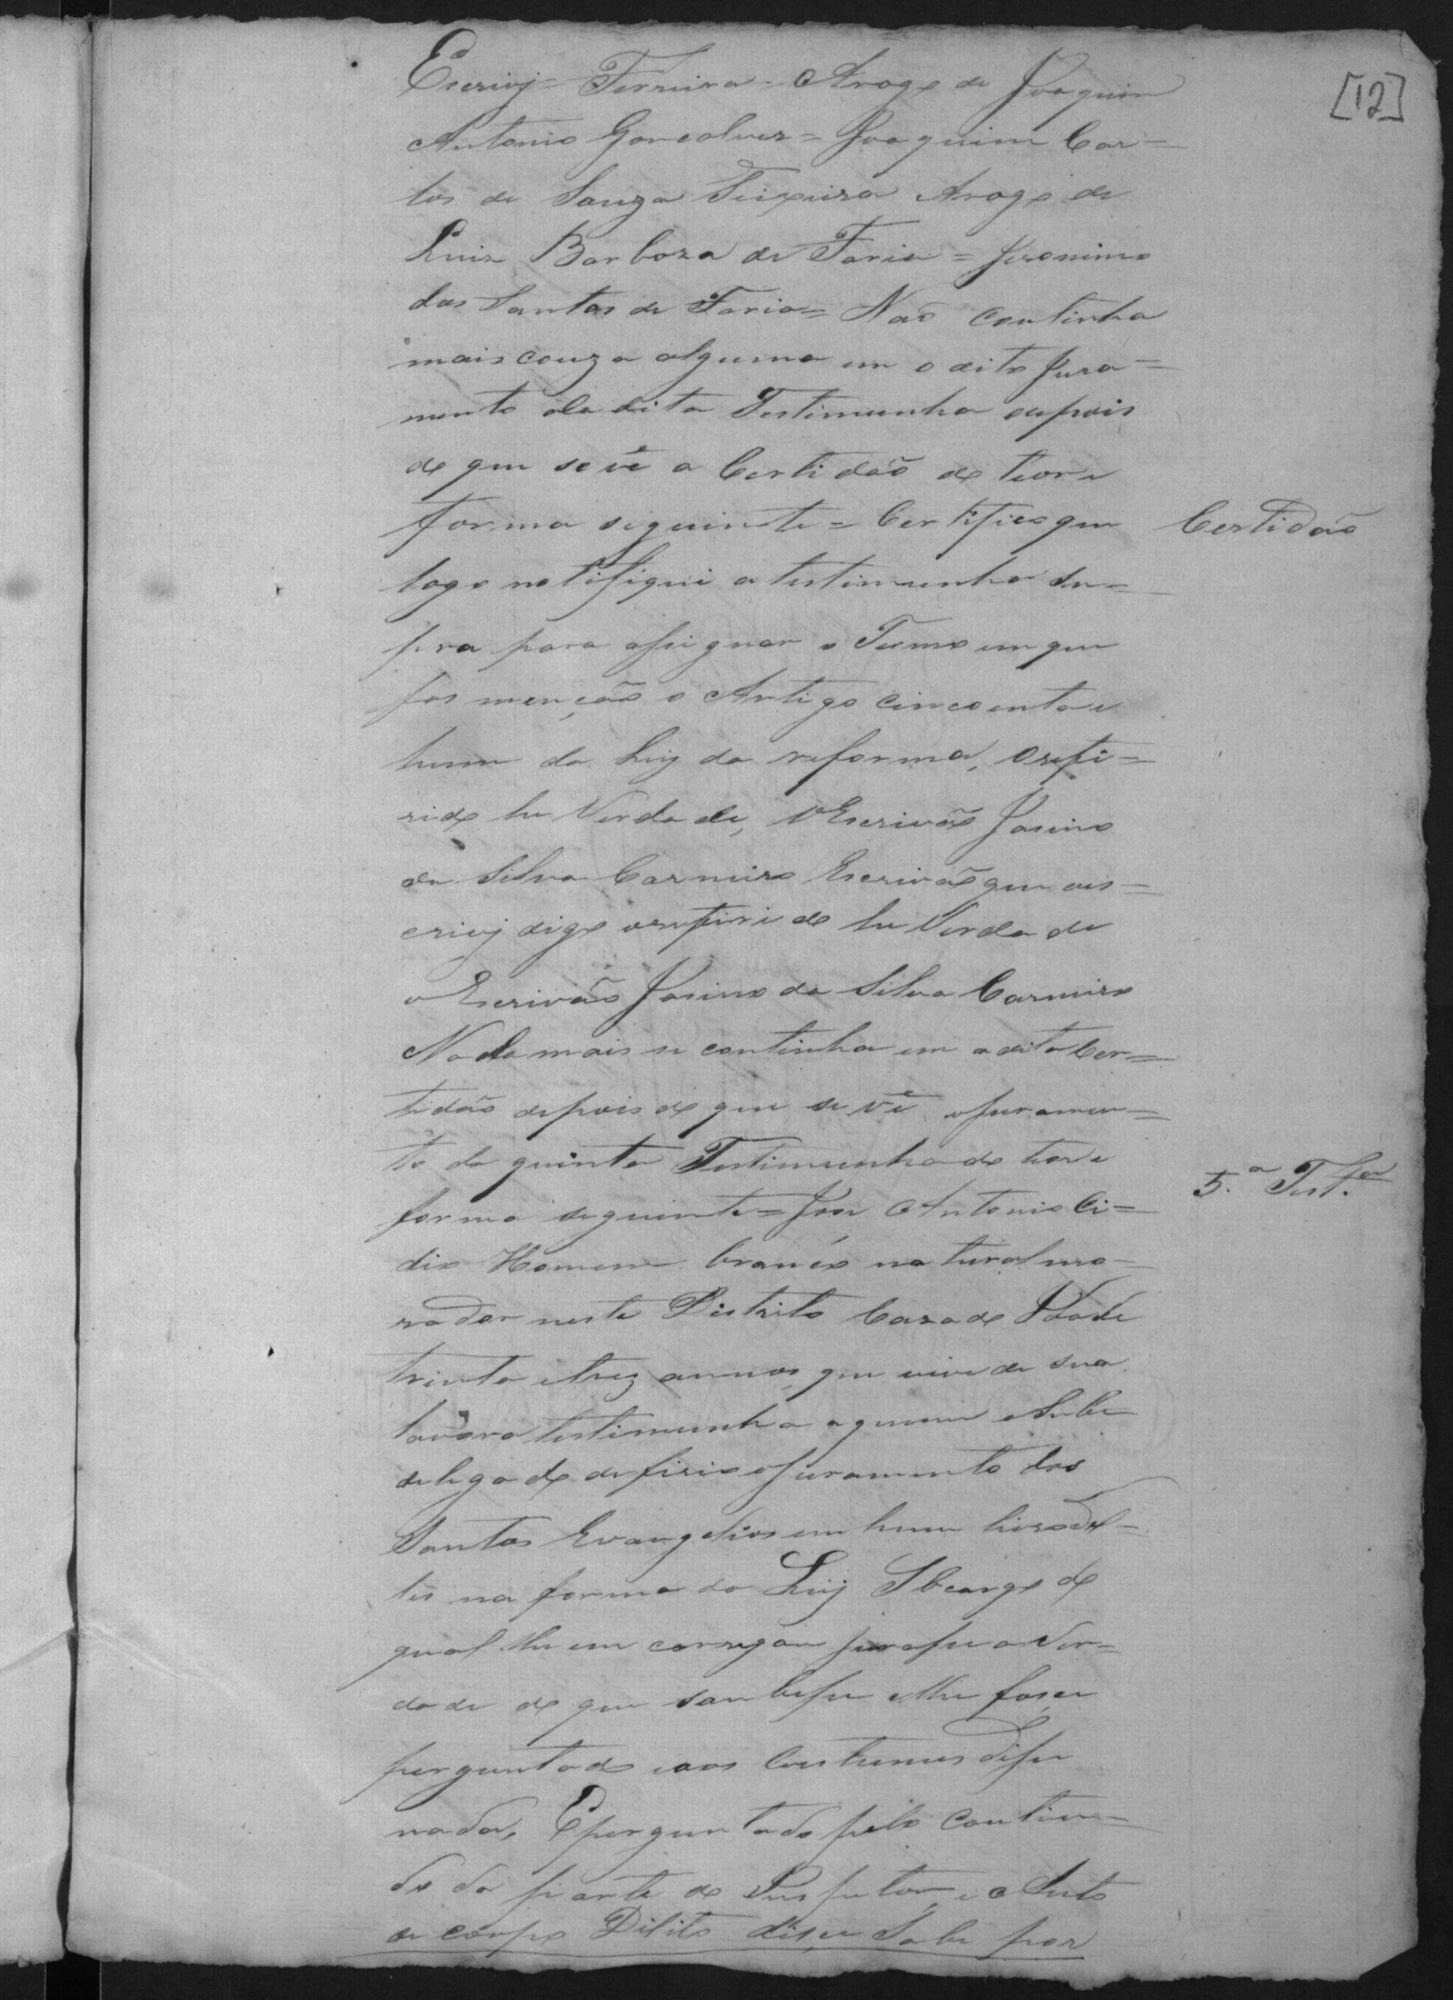 [12]
Escrivj = Ferreira = Arogo de Joaquim
Antonio Gonçalves = Joaquim Car=
los de Souza Teixeira Arogo de
Luis Barboza de Faria = Jeronimo
dos Santos de Faria = Naõ continha
mais couza alguma em o dito Jura=
mento da dita Testimunha depois
de que se vê a Certidaõ do teor e
forma seguinte = Certifico que
Certidaõ
logo notifiquei a testimunha Su=
pra para assignar o Termo em que
fas mençaõ o Artigo cincoenta e
hum da Leij da reforma, orefi=
rido he Verdade, o Escrivaõ Josino
da Silva Carneiro Escrivaõ que oes=
crivj digo orefirido he Verdade
o Escrivaõ Josino da Silva Carneiro
Nada mais se continha em a dita Cer=
tidaõ depois do que se vê o juramen=
to da quinta Testimunha do teor e
5.ª Test.ª
forma seguinte = José Antonio Ci=
dio Homem branco natural mo=
rador neste Distrito Cazado Idade
trinta e trez annos que vive de sua
lavora testimunha aquem o Sube
delegado difirio o juramento dos
Santos Evangelios em hum livro del=
les na forma da Leij Sbcargo do
qual lhe em carregou jurasse a Ver=
dade do que soubesse e lhe fosse
perguntado e aos Custumes disse
nada, E perguntado pelo Contiu=
do da parte do Inspetor, e o Auto
de corpo Dilito disse Sabe por